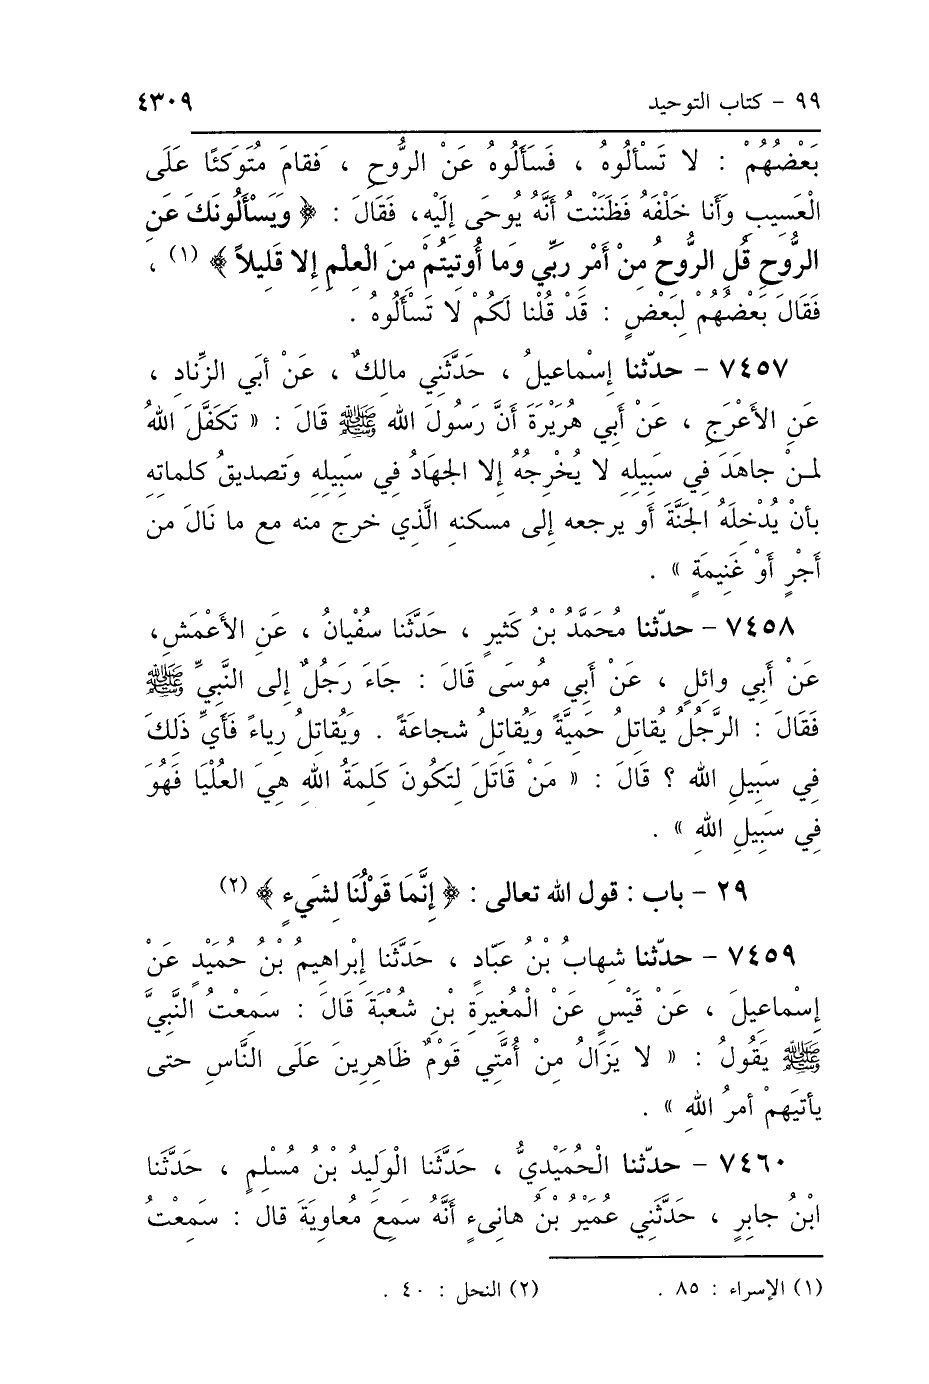 ٩٩ - كتاب التوحيد ٤٣٠٩
بَعْضُهُمْ : لا تَسْألُوهُ ، فَسَألُوهُ عَنْ الرُّوحِ ، فَقامَ مُتَوَكئًا عَلَى
الْعَسِيبِ وَأنا خَلْفَهُ فَظَنَنْتُ أنَّهُ يُوحَى إلَيْهِ، فَقَالَ : ﴿ وَيَسْألُونَكَ عَنِ
الرُّوحِ قُلِ الرُّوحُ مِنْ أمْرِ رَبِّي وَما أُوتِيتُمْ مِنَ الْعِلْمِ إلا قَلِيلاً ﴾ (١) ،
فَقَالَ بَعْضُهُمْ لِبَعْضٍ : قَدْ قُلْنا لَكُمْ لا تَسْألُوهُ .
٧٤٥٧ - حدّثنا إسْماعيلُ ، حَدَّثَنِي مالِكٌ ، عَنْ أبَي الزِّنادِ ،
عَنِ الأعْرَجِ ، عَنْ أبِي هُرَيْرَةَ أنَّ رَسُولَ الله ﷺ قَالَ : « تَكَفَّلَ اللهُ
لمـنْ جاهَدَ فِي سَبِيلِهِ لا يُخْرِجُهُ إلا الجِهَادُ فِي سَبِيلِهِ وَتَصديقُ كلماتِهِ
بأنْ يُدْخِلَهُ الجَنَّةَ أو يرجعه إلى مسكنهِ الَّذي خرج منه مع ما نَالَ من
أجْرٍ أوْ غَنِيمَةٍ » .
٧٤٥٨ - حدّثنا مُحَمَّدُ بْنُ كَثيرٍ ، حَدَّثَنا سفْيانُ ، عَنِ الأعْمَشِ،
عَنْ أبِي وائِلٍ ، عَنْ أبِي مُوسَى قَالَ : جَاءَ رَجُلٌ إلى النَّبِيِّ ﷺ
فَقَالَ : الرَّجُلُ يُقاتِلُ حَمِيَّةً وَيُقاتِلُ شجاعَةً . وَيُقاتِلُ رِياءً فَأيِّ ذَلِكَ
فِي سَبِيلِ الله ؟ قَالَ : « مَنْ قَاتَلَ لتَكُونَ كَلِمَةُ اللهِ هِيَ العُلْيَا فَهُوَ
فِي سَبِيلِ اللهِ » .
٢٩ - باب : قول الله تعالى : ﴿ إنَّمَا قَوْلُنَا لِشَيءٍ ﴾ (٢)
٧٤٥٩ - حدّثنا شهابُ بْنُ عَبّادٍ ، حَدَّثَنَا إبْراهيمُ بْنُ حُمَيْدٍ عَنْ
إسْماعيلَ ، عَنْ قَيْسٍ عَنْ الْمُغيرَةِ بْنِ شُعْبَةَ قَالَ : سَمِعْتُ النَّبِيَّ
ﷺ يَقُولُ : « لا يَزَالُ مِنْ أُمَّتِي قَوْمٌ ظَاهِرِينَ عَلَى النَّاسِ حتى
يأتيَهمْ أمرُ اللهِ » .
٧٤٦٠ - حدّثنا الْحُمَيْدِيُّ ، حَدَّثَنَا الْوَلِيدُ بْنُ مُسْلِمٍ ، حَدَّثَنا
ابْنُ جابِرٍ ، حَدَّثَنِي عُمَيْرُ بْنُ هانىءٍ أنَّهُ سَمِعَ مُعاوِيَةَ قال : سَمِعْتُ
(١) الإسراء : ٨٥ . (٢) النحل : ٤٠ .